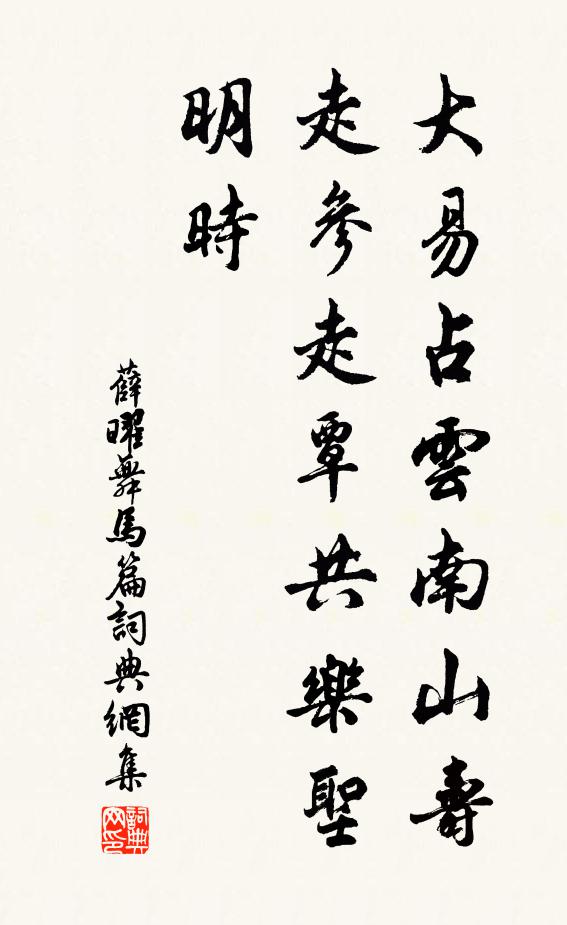 大易占雲南山壽
走參走覃共樂聖
明時
薛曜舞馬篇詞典網集
詞典网印